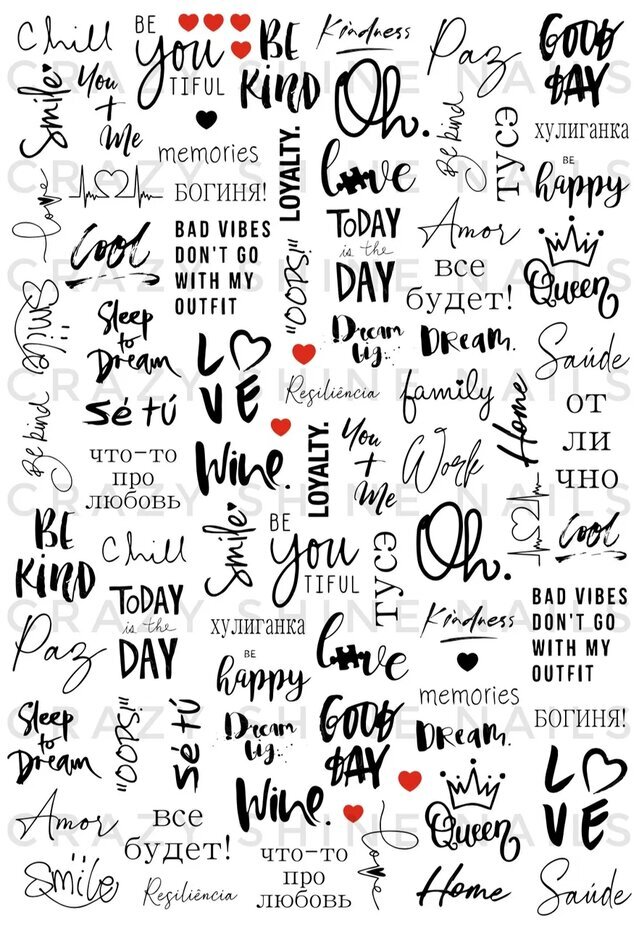 Chill
BE
You
TIFUL
BE
KIND
Kindness
Paz
GOOD
DAY
Smile
You
+
Me
Oh.
Be kind
ТУСЭ
хулиганка
memories
LOYALTY.
love
BE
happy
love
БОГИНЯ!
Cool
BAD VIBES
DON'T GO
WITH MY
OUTFIT
"OOPS!"
TODAY
is the
DAY
Amor
все
будет!
Queen
Smile
Sleep
to
Dream
LOVE
Dream
big...
DREAM.
Saúde
Resiliência
family
Home
от
ли
чно
Be kind
Sé tú
что-то
про
любовь
Wine.
LOYALTY.
You
+
Me
Work
Cool
BE
KIND
Chill
Smile
BE
You
TIFUL
ТУСЭ
Oh.
TODAY
is the
DAY
хулиганка
love
Kindness
BAD VIBES
DON'T GO
WITH MY
OUTFIT
Paz
BE
happy
memories
Sleep
to
Dream
"OOPS!"
Sé tú
Dream
big...
GOOD
DAY
DREAM.
БОГИНЯ!
LOVE
Amor
все
будет!
Wine.
Queen
Smile
Resiliência
что-то
про
любовь
love
Home
Saúde
CRAZY SHINE NAILS
CRAZY SHINE NAILS
CRAZY SHINE NAILS
CRAZY SHINE NAILS
CRAZY SHINE NAILS
CRAZY SHINE NAILS
CRAZY SHINE NAILS
CRAZY SHINE NAILS